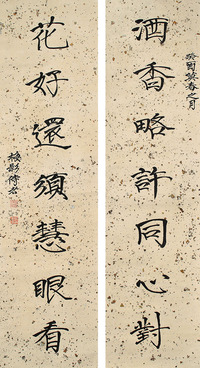 癸酉莫春之月
酒香略許同心對
花好還須慧眼看